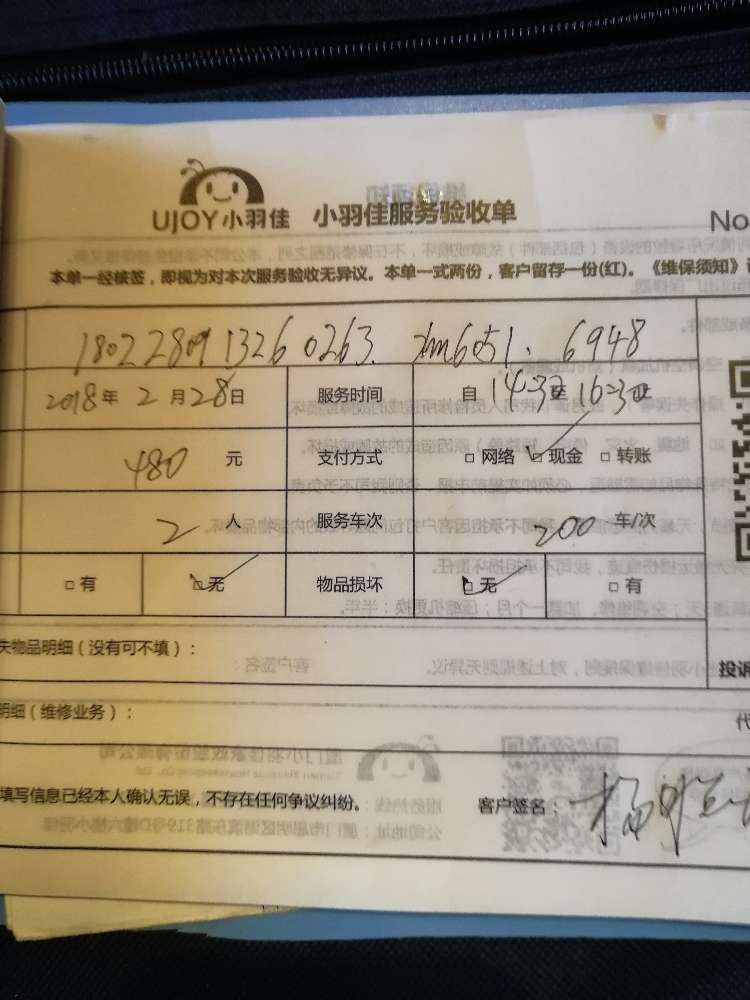 UJOY小羽佳 小羽佳服务验收单 No
本单一经核签，即视为对本次服务验收无异议。本单一式两份，客户留存一份(红)。《维保须知》
1802280913260263. zm6051. 6948
2018年 2月28日 服务时间 自 14:32至16:32止
480 元 支付方式 □网络 ☑现金 □转账
2 人 服务车次 200 车/次
□有 ☑无 物品损坏 ☑无 □有
失物品明细（没有可不填）： 投诉
明细（维修业务）： 代
填写信息已经本人确认无误，不存在任何争议纠纷。 客户签名： 杨